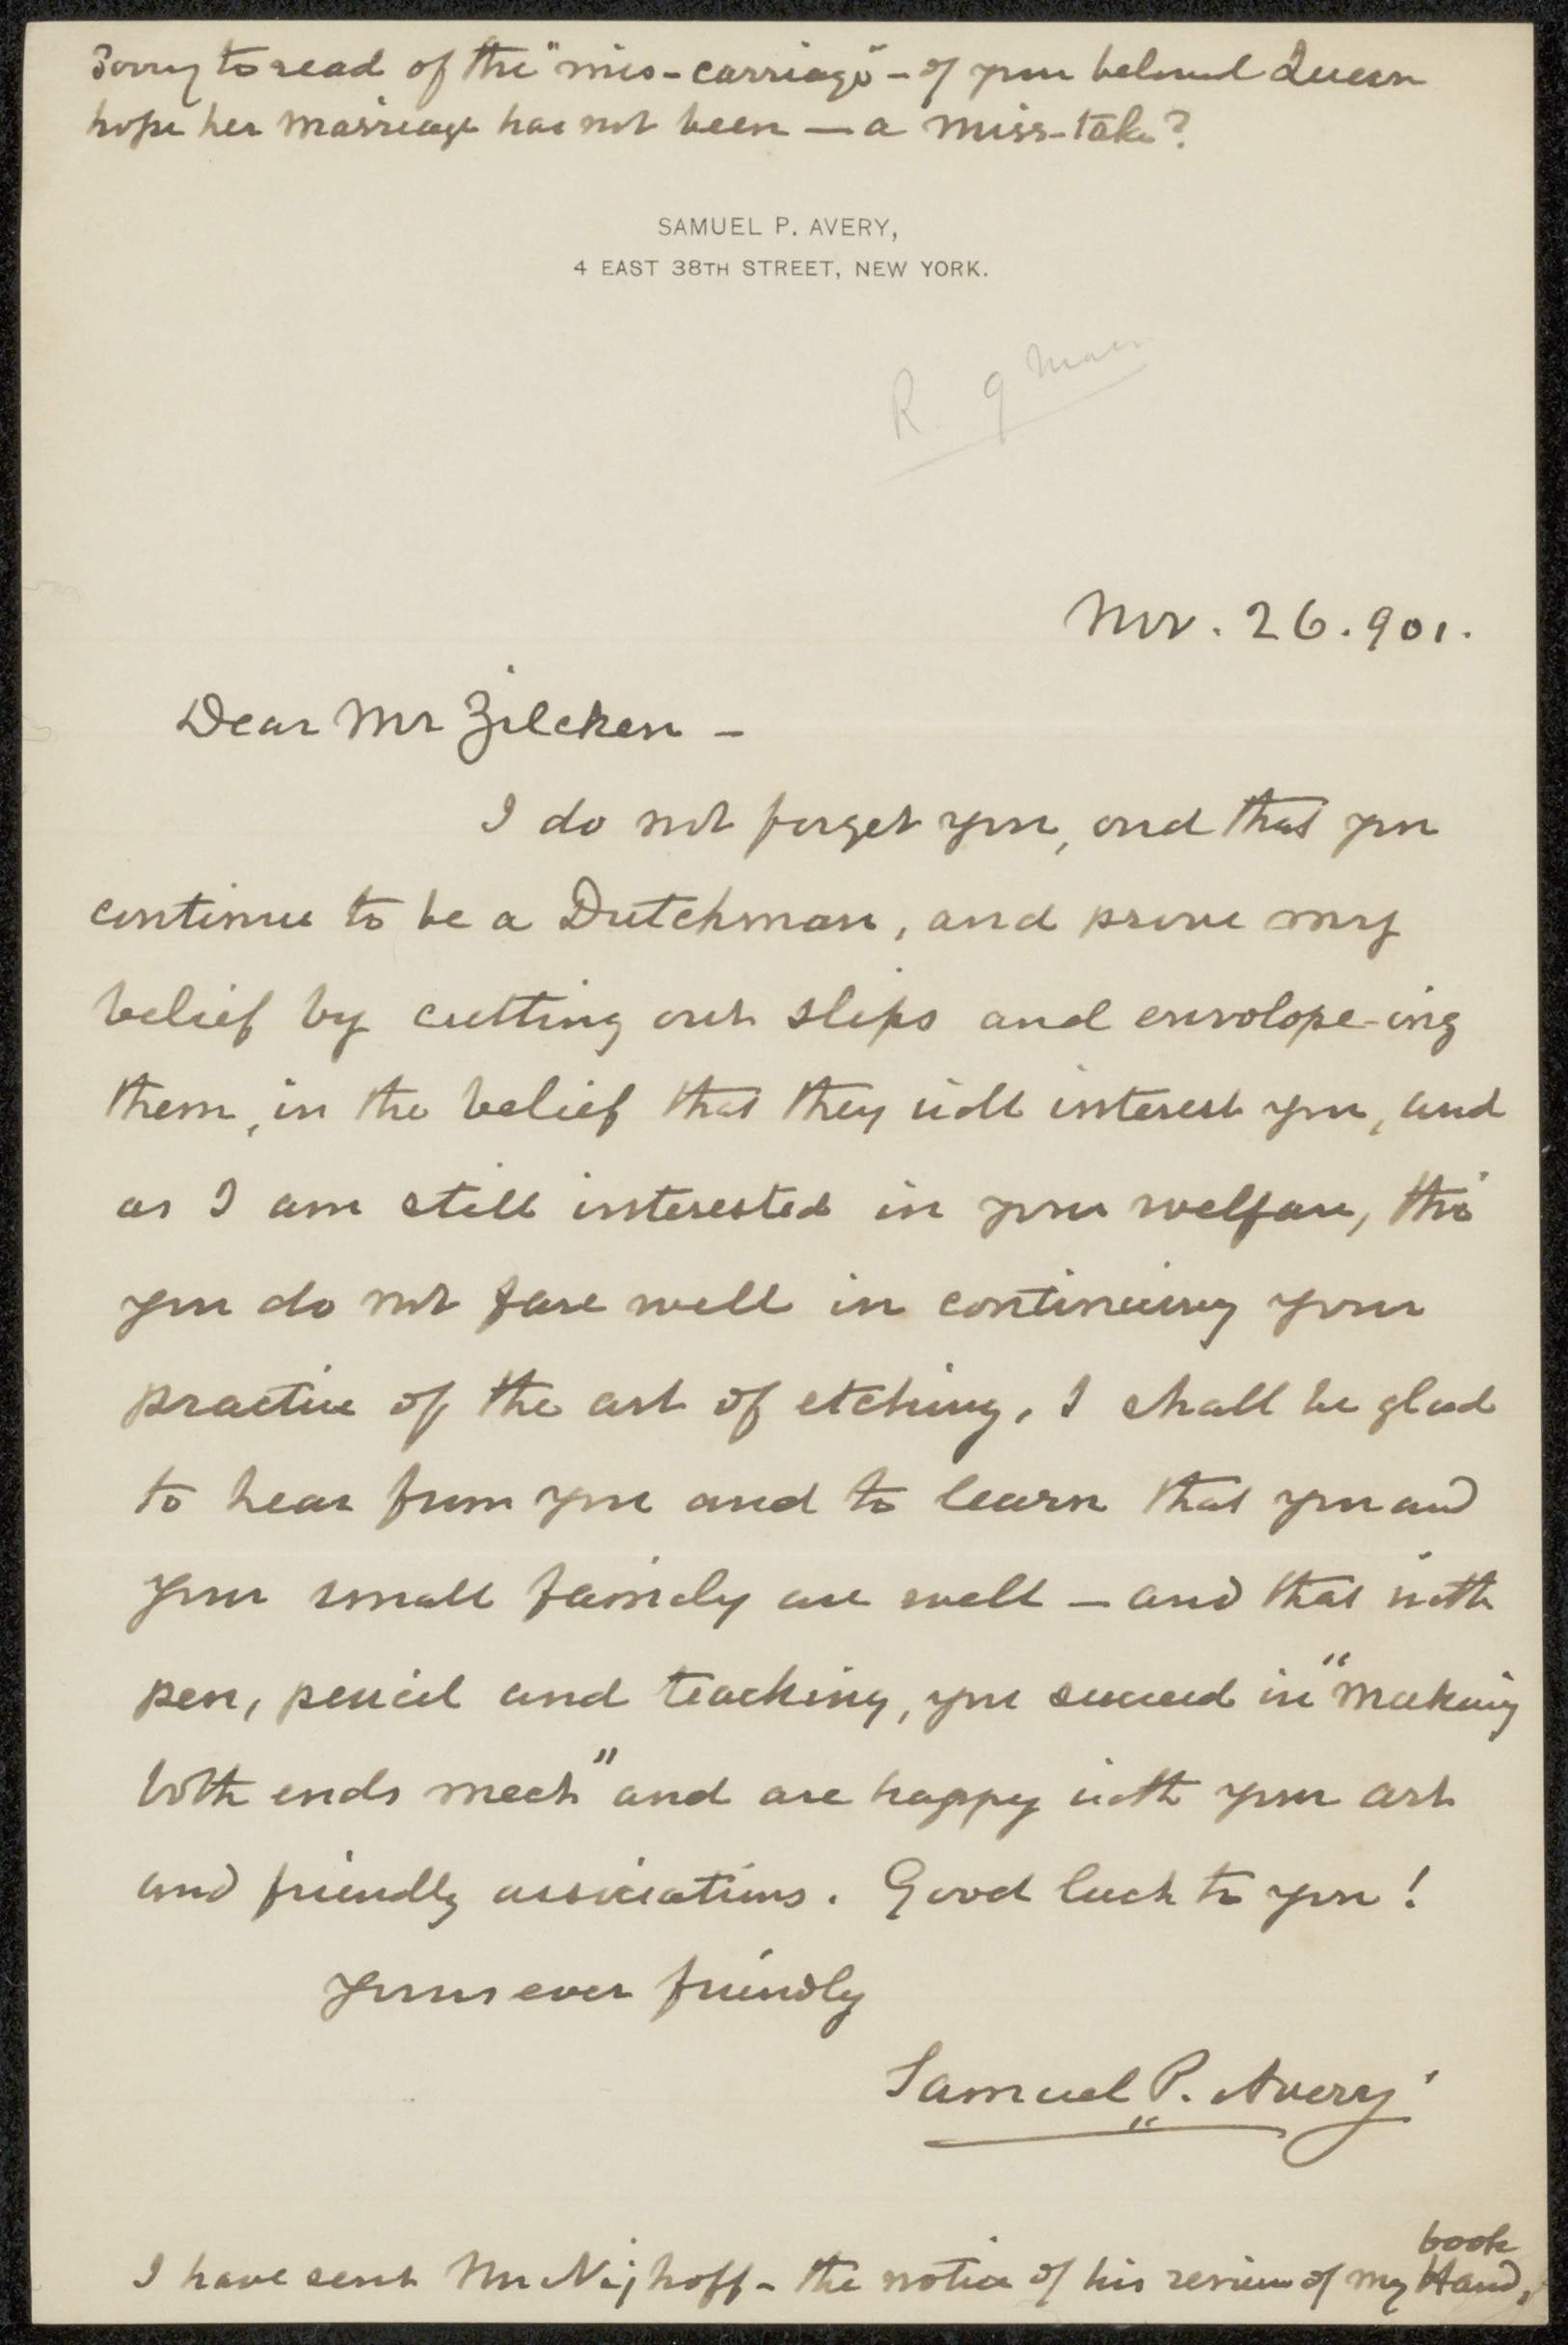 Sorry to read of the "mis-carriage" - of your beloved Queen
hope her marriage has not been — a miss-take?
SAMUEL P. AVERY,
4 EAST 38TH STREET, NEW YORK.
R 9
Nov. 26. 901.
Dear Mr Zilcken -
I do not forget you, and that you
continue to be a Dutchman, and prove my
belief by cutting out slips and envolope-ing
them, in the belief that they will interest you, and
as I am still interested in your welfare, tho'
you do not fare well in continuing your
practice of the art of etching, I shall be glad
to hear from you and to learn that you and
your small family are well — and that with
pen, pencil and teaching, you succeed in "making
both ends meet" and are happy with your art
and friendly associations. Good luck to you!
yours ever friendly
Samuel P. Avery
book
I have sent Mr Nijhoff - the notice of his review of my Hand,